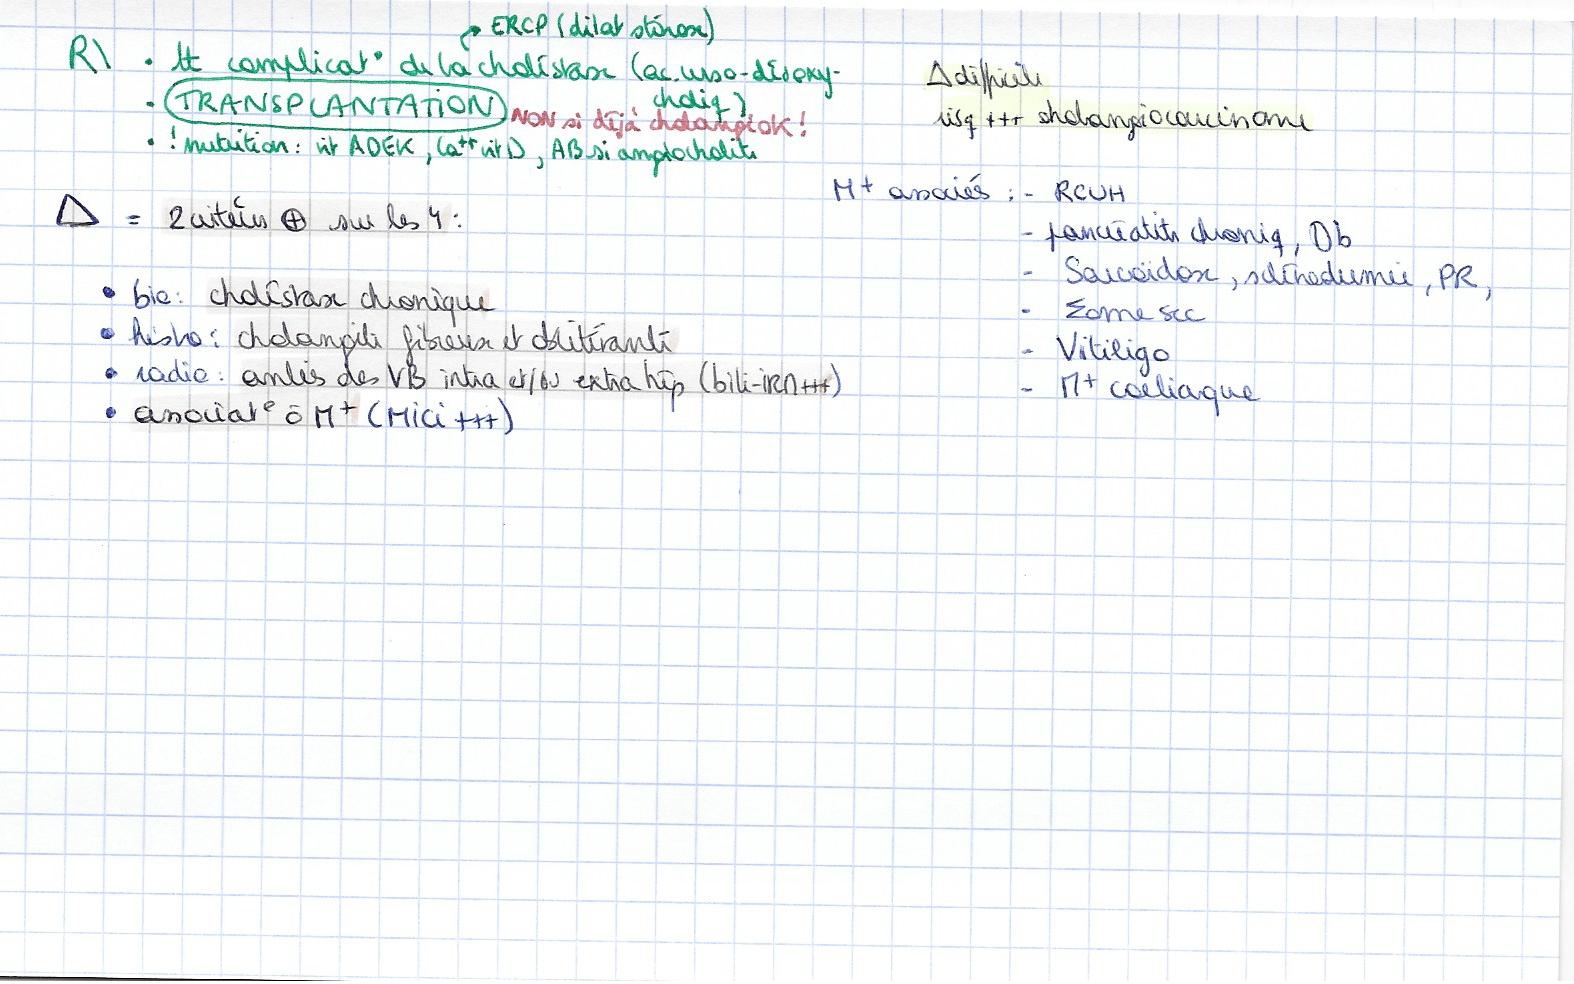 ERCP (dilat sténose)
R\ • tt complicat° de la cholestase (ac. urso-désoxy-
choliq)
• TRANSPLANTATION NON si déjà cholangioK !
• ! nutrition : vit ADEK, Ca++ vit D, AB si angiocholite
Δ difficile
risq +++ cholangiocarcinome
Δ = 2 critères ⊕ sur les 4 :
• bio : cholestase chronique
• histo : cholangite fibreuse et oblitérante
• radio : anlies des VB intra et/ou extra hép (bili-IRM +++)
• associat° ō M+ (MICI +++)
M+ associés : - RCUH
- pancréatite chroniq, Db
- Sarcoïdose, sclérodermie, PR,
- Σome sec
- Vitiligo
- M+ coeliaque